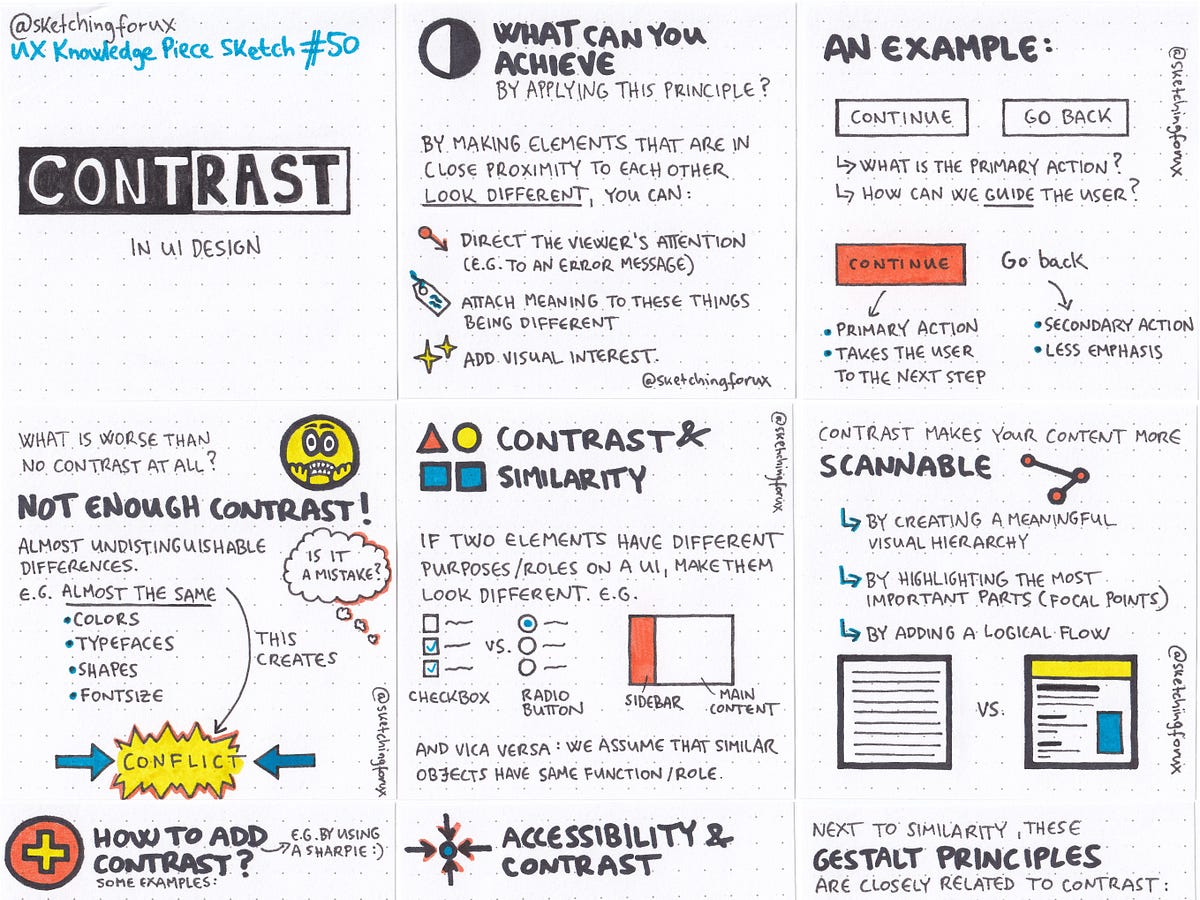 @sketchingforux
UX Knowledge Piece Sketch #50
CONTRAST
IN UI DESIGN
WHAT CAN YOU
ACHIEVE
BY APPLYING THIS PRINCIPLE?
BY MAKING ELEMENTS THAT ARE IN
CLOSE PROXIMITY TO EACH OTHER
LOOK DIFFERENT, YOU CAN:
DIRECT THE VIEWER'S ATTENTION
(E.G. TO AN ERROR MESSAGE)
ATTACH MEANING TO THESE THINGS
BEING DIFFERENT
ADD VISUAL INTEREST.
@sketchingforux
AN EXAMPLE:
@sketchingforux
CONTINUE GO BACK
WHAT IS THE PRIMARY ACTION?
HOW CAN WE GUIDE THE USER?
CONTINUE Go back
• PRIMARY ACTION
• TAKES THE USER
TO THE NEXT STEP
• SECONDARY ACTION
• LESS EMPHASIS
WHAT IS WORSE THAN
NO CONTRAST AT ALL?
NOT ENOUGH CONTRAST!
ALMOST UNDISTINGUISHABLE
DIFFERENCES.
E.G. ALMOST THE SAME
• COLORS
• TYPEFACES
• SHAPES
• FONTSIZE
IS IT
A MISTAKE?
THIS
CREATES
CONFLICT
@sketchingforux
CONTRAST &
SIMILARITY
@sketchingforux
IF TWO ELEMENTS HAVE DIFFERENT
PURPOSES/ROLES ON A UI, MAKE THEM
LOOK DIFFERENT. E.G.
VS.
CHECKBOX
RADIO
BUTTON
SIDEBAR
MAIN
CONTENT
AND VICA VERSA: WE ASSUME THAT SIMILAR
OBJECTS HAVE SAME FUNCTION/ROLE.
CONTRAST MAKES YOUR CONTENT MORE
SCANNABLE
BY CREATING A MEANINGFUL
VISUAL HIERARCHY
BY HIGHLIGHTING THE MOST
IMPORTANT PARTS (FOCAL POINTS)
BY ADDING A LOGICAL FLOW
VS.
@sketchingforux
HOW TO ADD
CONTRAST?
SOME EXAMPLES:
E.G. BY USING
A SHARPIE :)
ACCESSIBILITY &
CONTRAST
NEXT TO SIMILARITY, THESE
GESTALT PRINCIPLES
ARE CLOSELY RELATED TO CONTRAST: